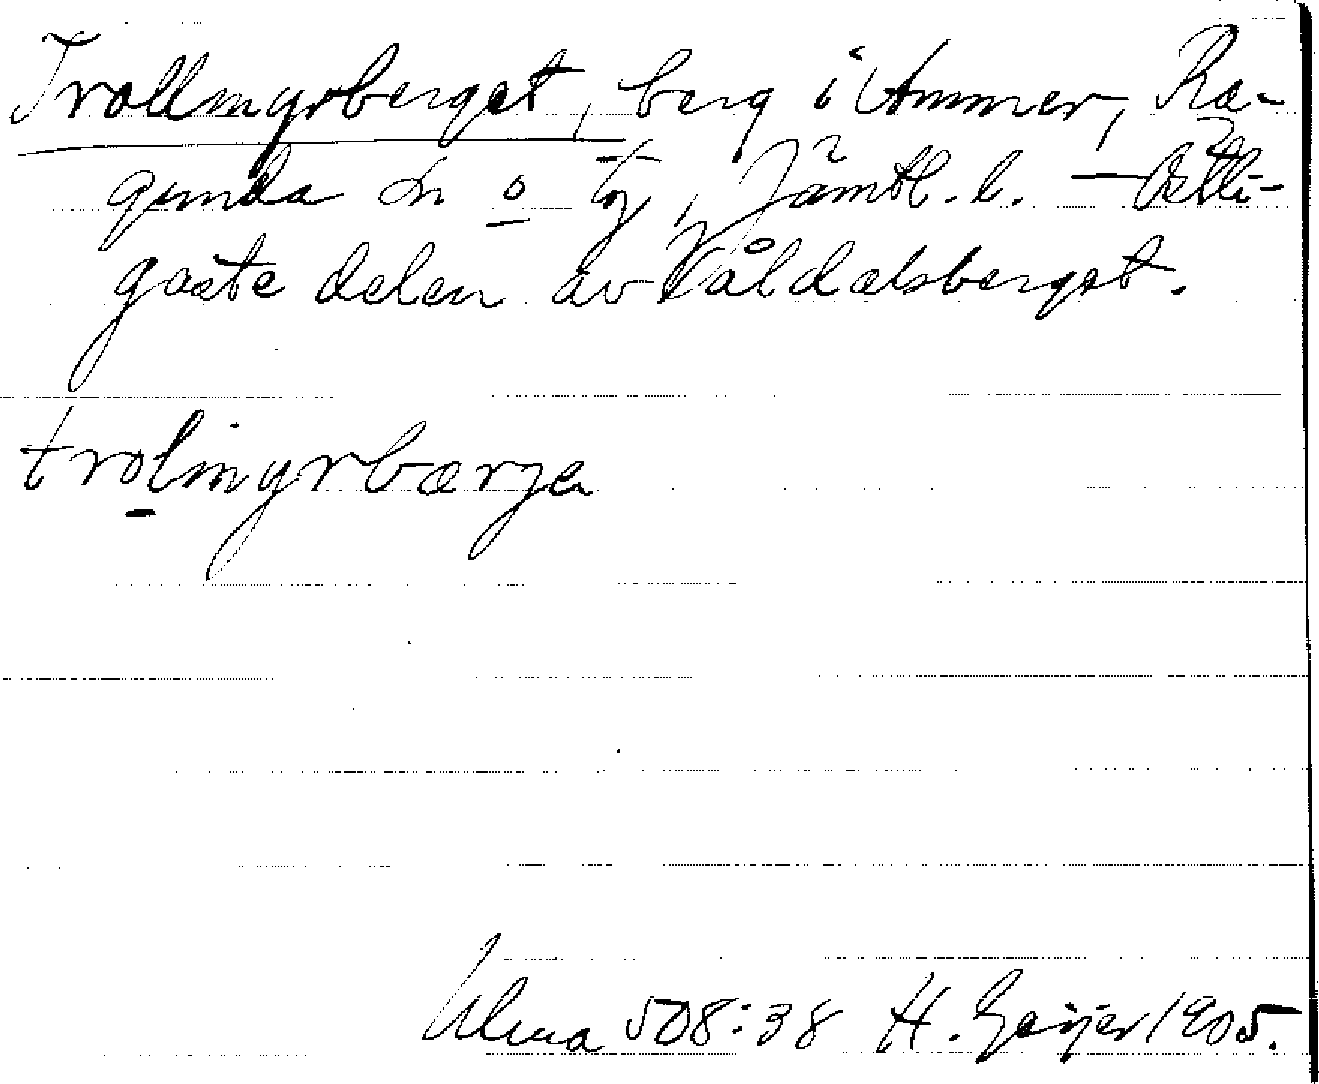 Trollmyrberget, berg i Ammer, Ra-
gunda sn o tg, Jämtl. l. — Östli-
gaste delen av Våldalsberget.
trolmyrbærja
Ulma 508:38 H. Geijer 1905.